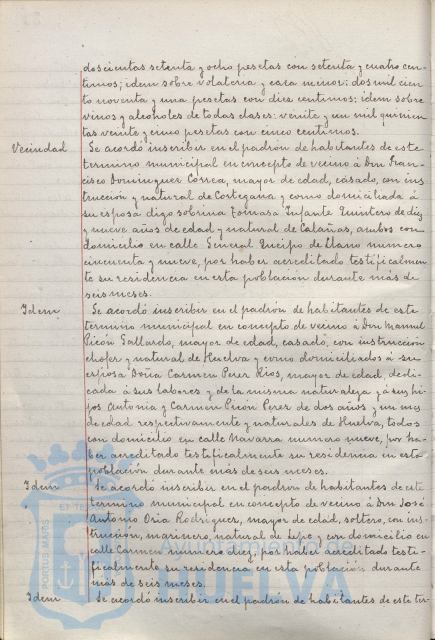 doscientas setenta y ocho pesetas con setenta y cuatro cen-
timos; idem sobre volateria y caza menor: dos mil cien-
to noventa y una pesetas con dies centimos: idem sobre
vinos y alcoholes de todas clases: veinte y un mil quinien-
tas veinte y cinco pesetas con cinco centimos.
Vecindad Se acordó inscribir en el padrón de habitantes de este
termino municipal en concepto de vecino á Don Fran-
cisco Dominguez Correa, mayor de edad, casado, con ins-
trucción y natural de Cortegana y como domiciliada á
su esposa digo sobrina Tomasa Infante Quintero de diez
y nueve años de edad y natural de Calañas, ambos con
domicilio en calle General Queipo de Llano numero
cincuenta y nueve, por haber acreditado testificalmen-
te su residencia en esta población durante más de
seis meses.
Idem Se acordó inscribir en el padrón de habitantes de este
termino municipal en concepto de vecino á Don Manuel
Picón Gallardo, mayor de edad, casado, con instrucción
chofer y natural de Huelva y como domiciliados á su
esposa Doña Carmen Perez Rios, mayor de edad, dedi-
cada á sus labores y de la misma naturaleza y á sus hi-
jos Antonia y Carmen Picón Perez de dos años y un mes
de edad respectivamente y naturales de Huelva, todos
con domicilio en calle Navarra numero nueve, por ha-
ber acreditado testificalmente su residencia en esta
población durante más de seis meses.
Idem Se acordó inscribir en el padrón de habitantes de este
termino municipal en concepto de vecino á Don José
Antonio Oria Rodrigues, mayor de edad, soltero, con ins-
trucción, marinero, natural de Lepe y con domicilio en
calle Carmen numero diez, por haber acreditado testi-
ficalmente su residencia en esta población durante
más de seis meses.
Idem Se acordó inscribir en el padrón de habitantes de este ter-
PORTUS MARIS
ET TE
Ayuntamiento de
HUELVA